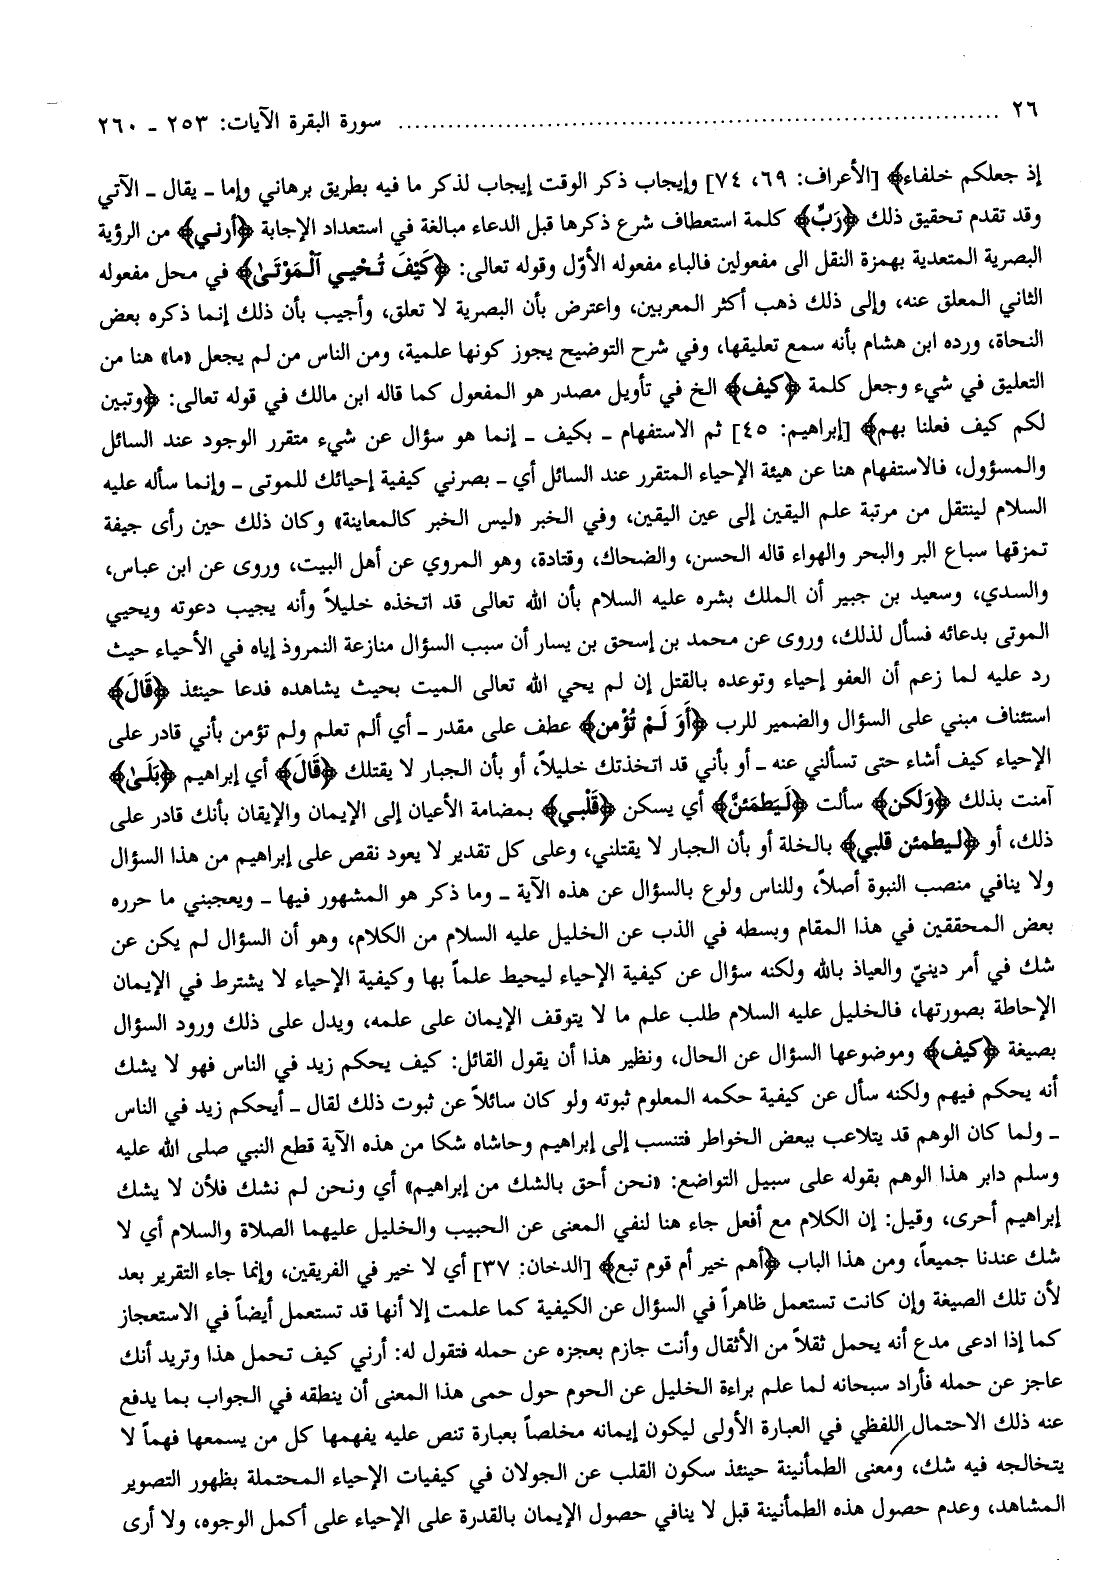 ٢٦ ........................................................ سورة البقرة الآيات: ٢٥٣ ـ ٢٦٠
إذ جعلكم خلفاء﴾ [الأعراف: ٦٩، ٧٤] وإيجاب ذكر الوقت إيجاب لذكر ما فيه بطريق برهاني وإما ـ يقال ـ الآتي
وقد تقدم تحقيق ذلك ﴿رَبِّ﴾ كلمة استعطاف شرع ذكرها قبل الدعاء مبالغة في استعداد الإجابة ﴿أرني﴾ من الرؤية
البصرية المتعدية بهمزة النقل الى مفعولين فالياء مفعوله الأوّل وقوله تعالى: ﴿كَيْفَ تُحْيي ٱلْمَوْتَىٰ﴾ في محل مفعوله
الثاني المعلق عنه، وإلى ذلك ذهب أكثر المعربين، واعترض بأن البصرية لا تعلق، وأجيب بأن ذلك إنما ذكره بعض
النحاة، ورده ابن هشام بأنه سمع تعليقها، وفي شرح التوضيح يجوز كونها علمية، ومن الناس من لم يجعل «ما» هنا من
التعليق في شيء وجعل كلمة ﴿كيف﴾ الخ في تأويل مصدر هو المفعول كما قاله ابن مالك في قوله تعالى: ﴿وتبين
لكم كيف فعلنا بهم﴾ [إبراهيم: ٤٥] ثم الاستفهام ـ بكيف ـ إنما هو سؤال عن شيء متقرر الوجود عند السائل
والمسؤول، فالاستفهام هنا عن هيئة الإحياء المتقرر عند السائل أي ـ بصرني كيفية إحيائك للموتى ـ وإنما سأله عليه
السلام لينتقل من مرتبة علم اليقين إلى عين اليقين، وفي الخبر «ليس الخبر كالمعاينة» وكان ذلك حين رأى جيفة
تمزقها سباع البر والبحر والهواء قاله الحسن، والضحاك، وقتادة، وهو المروي عن أهل البيت، وروى عن ابن عباس،
والسدي، وسعيد بن جبير أن الملك بشره عليه السلام بأن الله تعالى قد اتخذه خليلاً وأنه يجيب دعوته ويحيي
الموتى بدعائه فسأل لذلك، وروى عن محمد بن إسحق بن يسار أن سبب السؤال منازعة النمروذ إياه في الأحياء حيث
رد عليه لما زعم أن العفو إحياء وتوعده بالقتل إن لم يحي الله تعالى الميت بحيث يشاهده فدعا حينئذ ﴿قَالَ﴾
استئناف مبني على السؤال والضمير للرب ﴿أَوَ لَمْ تُؤْمن﴾ عطف على مقدر ـ أي ألم تعلم ولم تؤمن بأني قادر على
الإحياء كيف أشاء حتى تسألني عنه ـ أو بأني قد اتخذتك خليلاً، أو بأن الجبار لا يقتلك ﴿قَالَ﴾ أي إبراهيم ﴿بَلَىٰ﴾
آمنت بذلك ﴿وَلَكن﴾ سألت ﴿لَيَطمَئنَّ﴾ أي يسكن ﴿قَلْبي﴾ بمضامة الأعيان إلى الإيمان والإيقان بأنك قادر على
ذلك، أو ﴿ليطمئن قلبي﴾ بالخلة أو بأن الجبار لا يقتلني، وعلى كل تقدير لا يعود نقص على إبراهيم من هذا السؤال
ولا ينافي منصب النبوة أصلاً، وللناس ولوع بالسؤال عن هذه الآية ـ وما ذكر هو المشهور فيها ـ ويعجبني ما حرره
بعض المحققين في هذا المقام وبسطه في الذب عن الخليل عليه السلام من الكلام، وهو أن السؤال لم يكن عن
شك في أمر دينيّ والعياذ بالله ولكنه سؤال عن كيفية الإحياء ليحيط علماً بها وكيفية الإحياء لا يشترط في الإيمان
الإحاطة بصورتها، فالخليل عليه السلام طلب علم ما لا يتوقف الإيمان على علمه، ويدل على ذلك ورود السؤال
بصيغة ﴿كيف﴾ وموضوعها السؤال عن الحال، ونظير هذا أن يقول القائل: كيف يحكم زيد في الناس فهو لا يشك
أنه يحكم فيهم ولكنه سأل عن كيفية حكمه المعلوم ثبوته ولو كان سائلاً عن ثبوت ذلك لقال ـ أيحكم زيد في الناس
ـ ولما كان الوهم قد يتلاعب ببعض الخواطر فتنسب إلى إبراهيم وحاشاه شكا من هذه الآية قطع النبي صلى الله عليه
وسلم دابر هذا الوهم بقوله على سبيل التواضع: «نحن أحق بالشك من إبراهيم» أي ونحن لم نشك فلأن لا يشك
إبراهيم أحرى، وقيل: إن الكلام مع أفعل جاء هنا لنفي المعنى عن الحبيب والخليل عليهما الصلاة والسلام أي لا
شك عندنا جميعاً، ومن هذا الباب ﴿أهم خير أم قوم تبع﴾ [الدخان: ٣٧] أي لا خير في الفريقين، وإنما جاء التقرير بعد
لأن تلك الصيغة وإن كانت تستعمل ظاهراً في السؤال عن الكيفية كما علمت إلا أنها قد تستعمل أيضاً في الاستعجاز
كما إذا ادعى مدع أنه يحمل ثقلاً من الأثقال وأنت جازم بعجزه عن حمله فتقول له: أرني كيف تحمل هذا وتريد أنك
عاجز عن حمله فأراد سبحانه لما علم براءة الخليل عن الحوم حول حمى هذا المعنى أن ينطقه في الجواب بما يدفع
عنه ذلك الاحتمال اللفظي في العبارة الأولى ليكون إيمانه مخلصاً بعبارة تنص عليه يفهمها كل من يسمعها فهماً لا
يتخالجه فيه شك، ومعنى الطمأنينة حينئذ سكون القلب عن الجولان في كيفيات الإحياء المحتملة بظهور التصوير
المشاهد، وعدم حصول هذه الطمأنينة قبل لا ينافي حصول الإيمان بالقدرة على الإحياء على أكمل الوجوه، ولا أرى